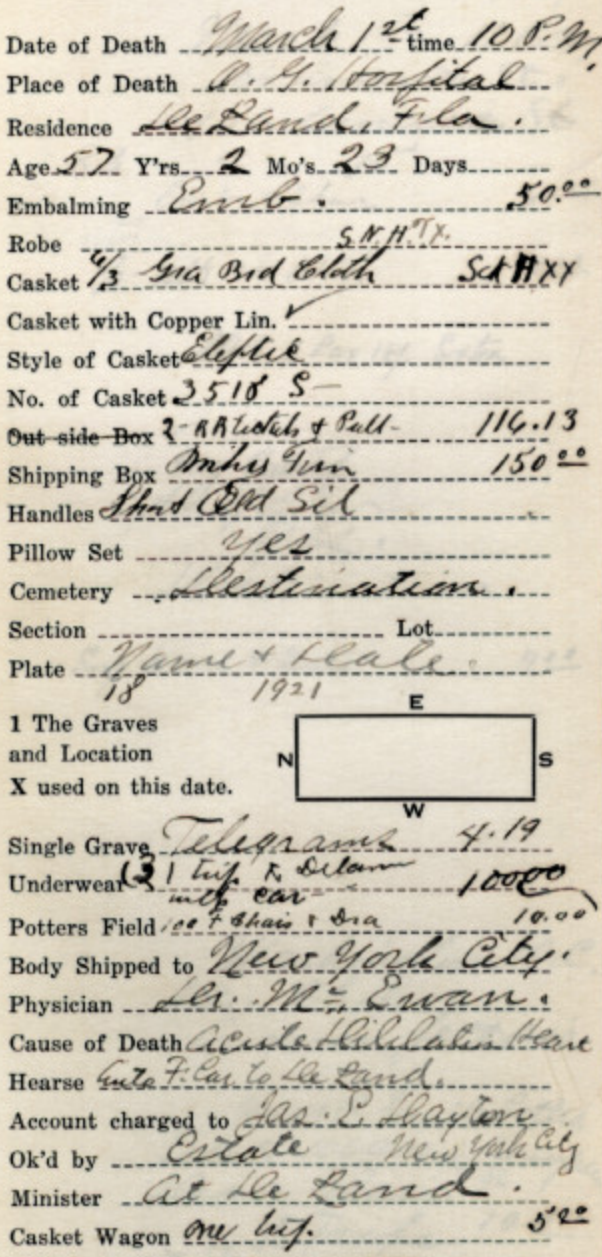 Date of Death March 1st time 10 P.M.
Place of Death O. G. Hospital
Residence De Land, Fla.
Age 57 Y'rs 2 Mo's 23 Days
Embalming Emb. 50.00
Robe
Casket 6/3 Gra Brd Cloth
Casket with Copper Lin. ✓
Style of Casket Eleptic
No. of Casket 3518 S
Out side Box 2 RR Tickets & Pull 116.13
Shipping Box 150 00
Handles Short Oxd Sil
Pillow Set yes
Cemetery Destination.
Section Lot
Plate Name & Date.
18 1921
E
1 The Graves
and Location
X used on this date.
N S
W
Single Grave Telegrams 4.19
Underwear 1 trip to Deland 100 00
car
Potters Field 100 F Chairs & 10.00
Body Shipped to New York City.
Physician Dr. Mc Ewan.
Cause of Death Acute Dililation Heart
Hearse Auto F. Car. to De Land.
Account charged to Jas. E. Dayton
Ok'd by Estate New York City
Minister At De Land.
Casket Wagon one trip. 5 00